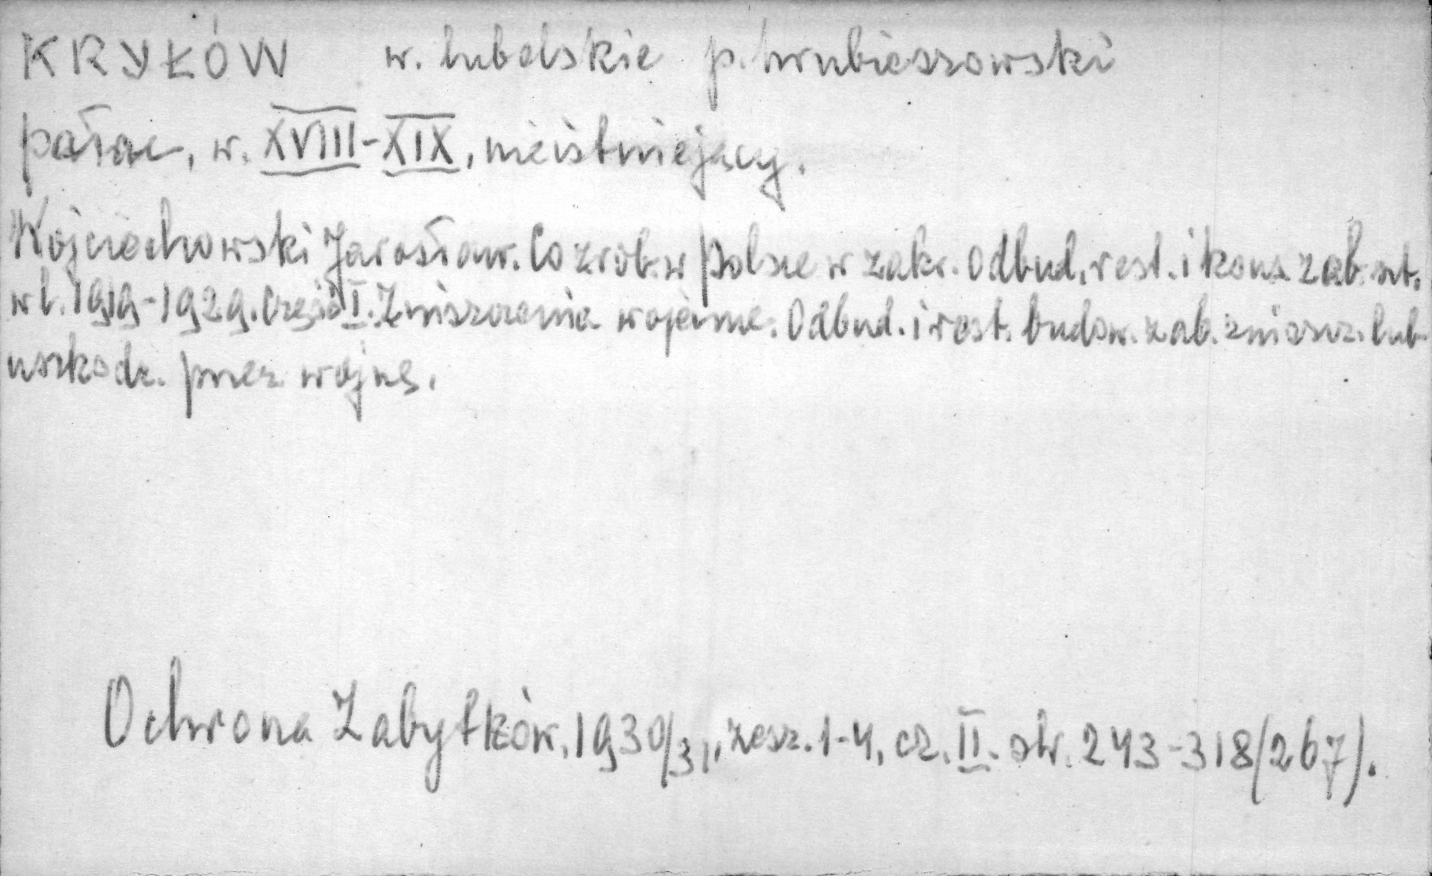 KRYŁÓW w. lubelskie p. hrubieszowski
pałac, w. XVIII-XIX, nieistniejący.
Wojciechowski Jarosław. Co zrob. w Polsce w zakr. Odbud, rest. i kons. zab. szt.
w l. 1919-1929. Część I. Zniszczenia wojenne. Odbud. i rest. budow. zab. zniszcz. lub
uszkodz. przez wojnę.
Ochrona Zabytków, 1930/31, zesz. 1-4, cz. II. str. 243-318/267).